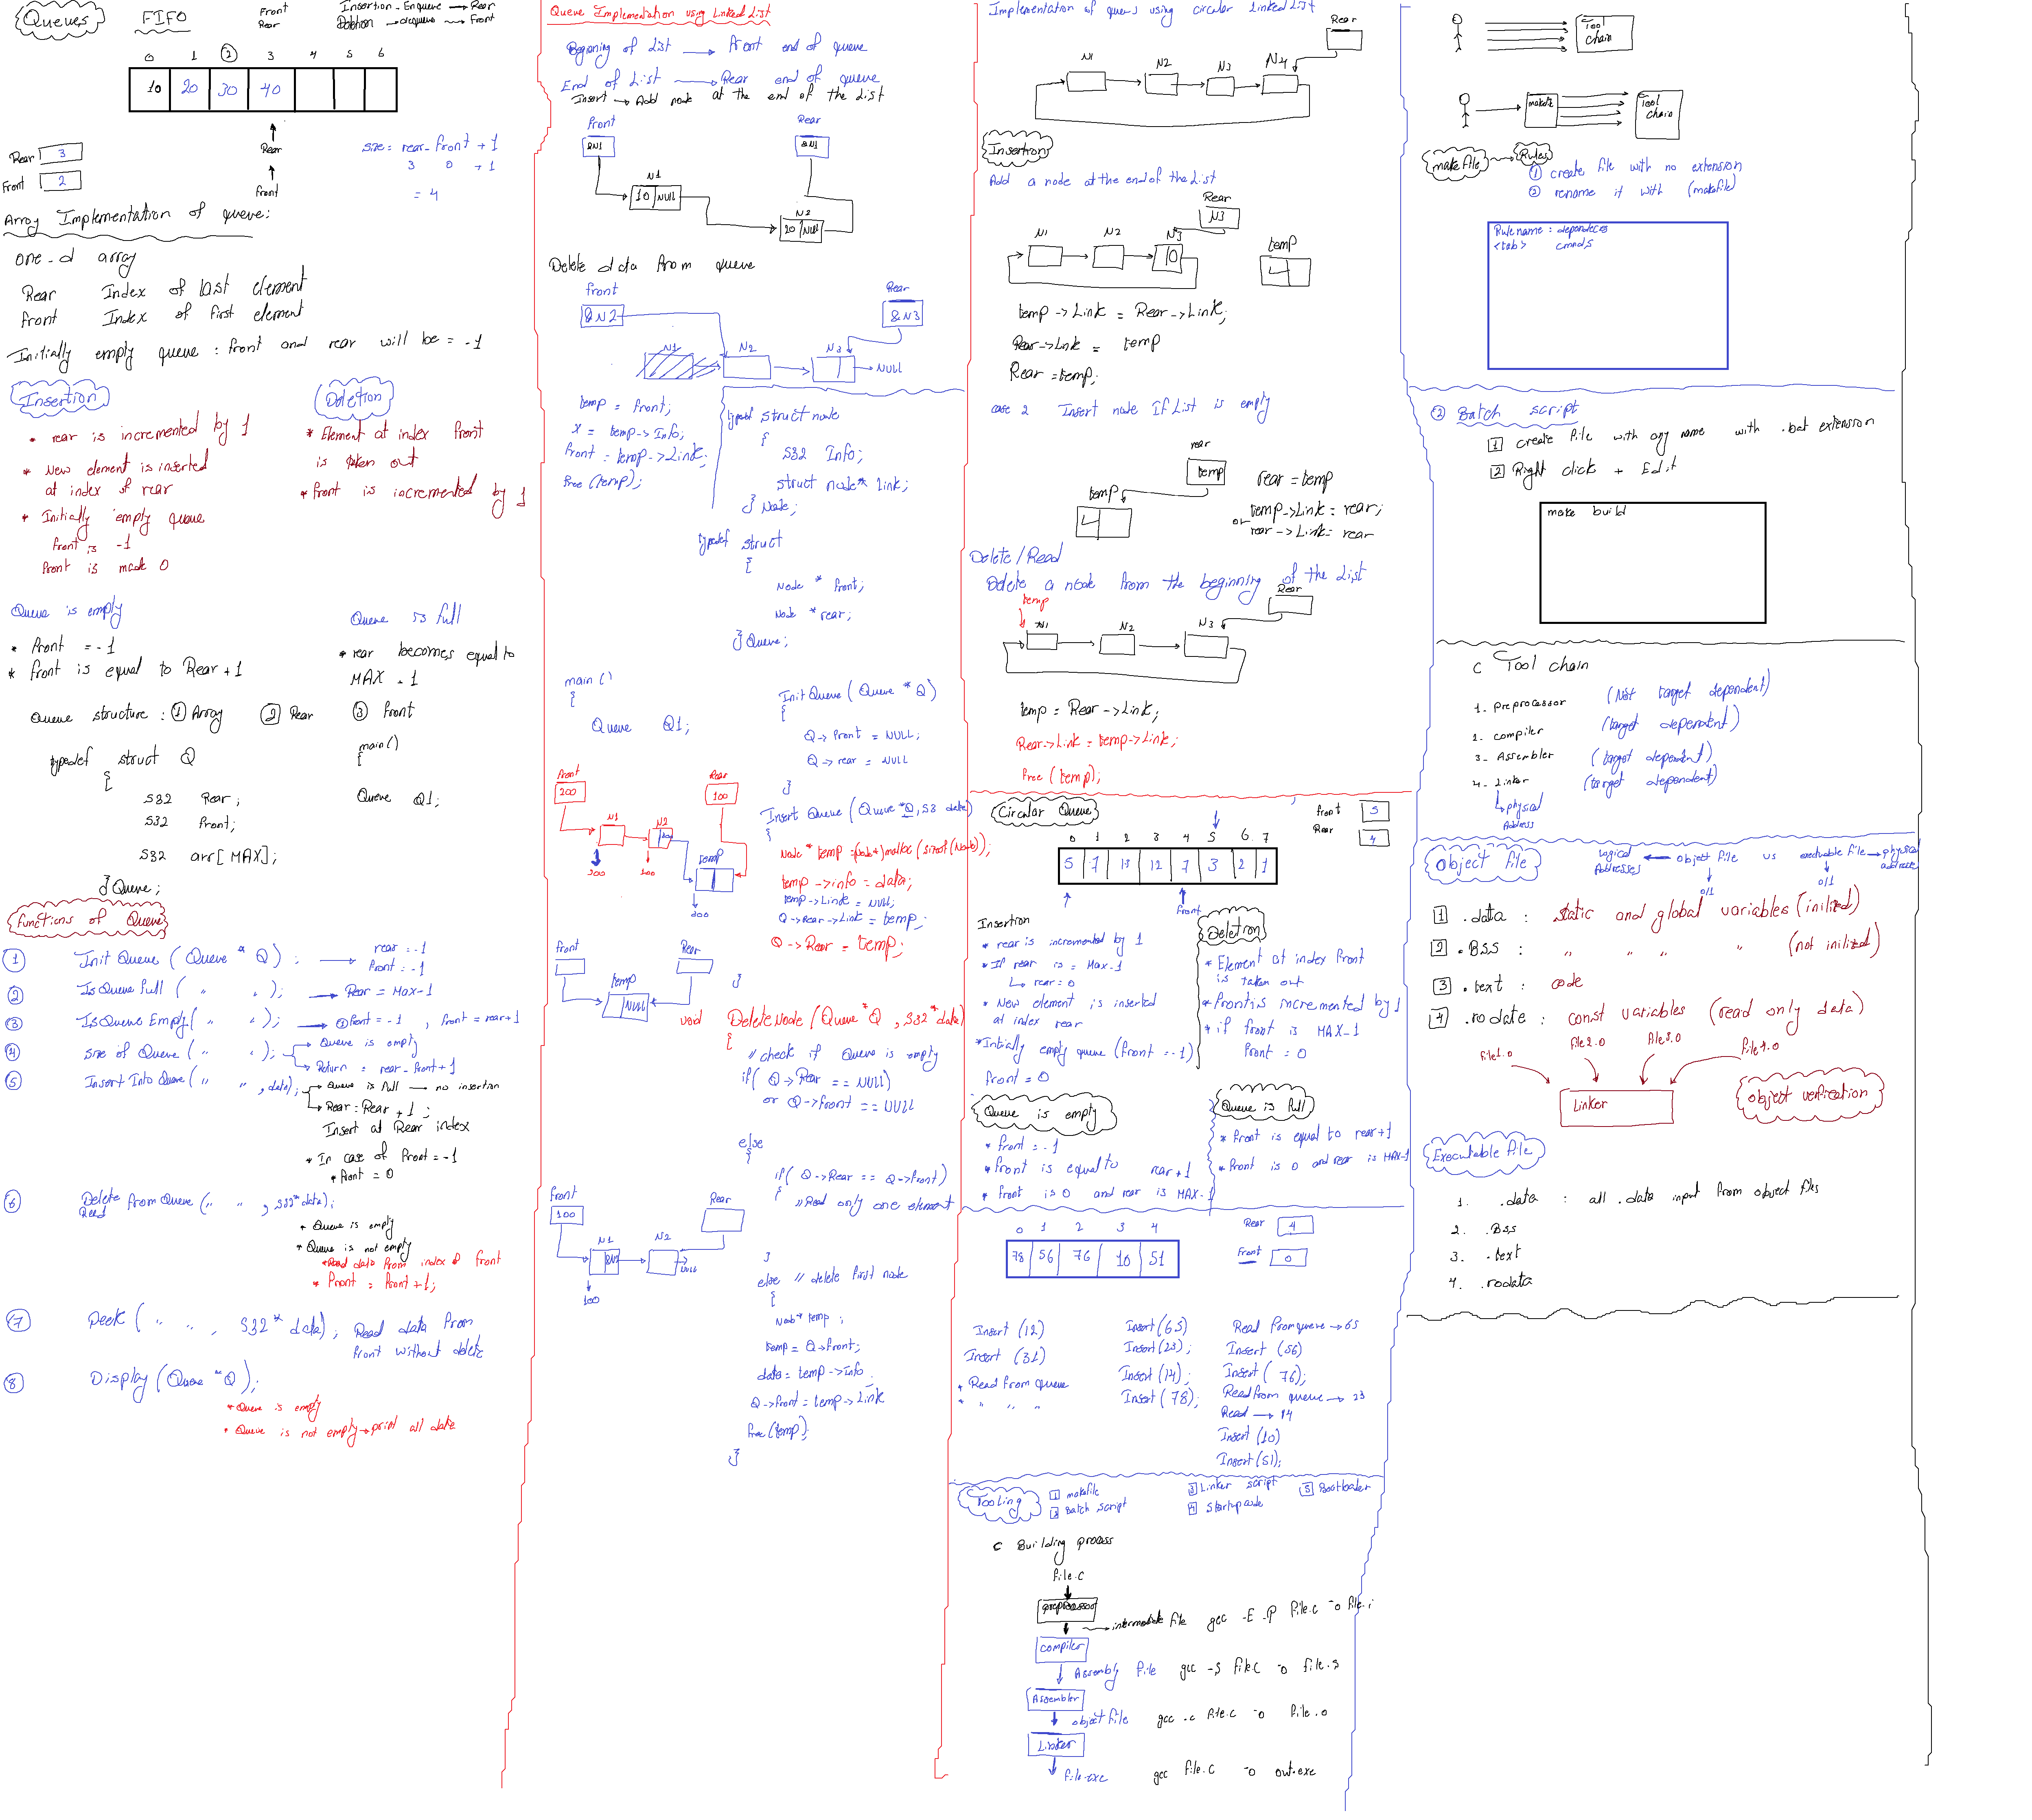 Queues
FIFO
Front
Rear
Insertion - Enqueue → Rear
Deletion → dequeue → Front
0 1 2 3 4 5 6
10 20 30 40
Rear
Front
Rear 3
Front 2
size = rear - front + 1
3 0 + 1
= 4
Array Implementation of queue:
one-d array
Rear Index of last element
Front Index of first element
Initially empty queue : front and rear will be = -1
Insertion
* rear is incremented by 1
* New element is inserted
at index of rear
* Initially empty queue
front is -1
Front is made 0
Deletion
* Element at index front
is taken out
* front is incremented by 1
Queue is empty
* Front = -1
* front is equal to Rear + 1
Queue is full
* rear becomes equal to
MAX - 1
Queue structure : ① Array ② Rear ③ Front
typedef struct Q
{
S32 Rear;
S32 Front;
S32 arr[MAX];
} Queue;
main()
{
Queue Q1;
Functions of Queue
① Init Queue (Queue * Q); → rear = -1
Front = -1
② IsQueue full ( " " ); → Rear = Max-1
③ IsQueue Empty( " " ); → ① Front = -1 , Front = rear+1
④ size of Queue ( " " ); → Queue is empty
→ Return = rear - front + 1
⑤ Insert Into Queue ( " " , data); → Queue is full → no insertion
→ Rear = Rear + 1 ;
Insert at Rear index
* In case of Front = -1
* Front = 0
⑥ Delete from Queue ( " " , S32* data);
Read
* Queue is empty
* Queue is not empty
* Read data from index of front
* Front = Front + 1;
⑦ Peek ( " " , S32* data); Read data from
front without delete
⑧ Display (Queue *Q);
* Queue is empty
* Queue is not empty → print all data
Queue Implementation using Linked List
Begining of List → Front end of queue
End of List → Rear end of queue
Insert → Add node at the end of the List
Front
&N1
Rear
&N1
N1
10 NULL
N2
20 NULL
Delete data from queue
Front
&N2
Rear
&N3
N1 N2 N3 → NULL
temp = front;
X = temp → Info;
front = temp → Link;
free (temp);
typedef struct node
{
S32 Info;
struct node* Link;
} Node;
typedef struct
{
Node * Front;
Node * rear;
} Queue;
main ()
{
Queue Q1;
Init Queue (Queue * Q)
{
Q → Front = NULL;
Q → rear = NULL
}
Front
200
Rear
100
N1 N2 temp
Insert Queue (Queue *Q, S3 data)
{
Node * temp = (Node*) malloc (sizeof (Node));
temp → info = data;
temp → Link = NULL;
Q → Rear → Link = temp;
Q → Rear = temp;
}
Front
Rear
temp
NULL
void Delete Node (Queue *Q , S32 *data)
{
// check if Queue is empty
if( Q → Rear == NULL)
or Q → Front == NULL
else
{
if( Q → Rear == Q → Front)
{ // Read only one element
}
else // delete First node
{
Node* temp ;
temp = Q → Front;
data = temp → Info
Q → Front = temp → Link
free (temp);
}
Front
100
Rear
N1 N2
NULL
100
Implementation of queues using circular Linked List
Rear
N1 N2 N3 N4
Insertion
Add a node at the end of the List
Rear
N3
N1 N2 N3
10
temp
4
temp → Link = Rear → Link;
Rear → Link = temp
Rear = temp;
case 2 Insert node If List is empty
rear
temp
temp
4
rear = temp
temp → Link = rear;
or rear → Link = rear
Delete / Read
Delete a node from the beginning of the List
temp
Rear
N1 N2 N3
temp = Rear → Link;
Rear → Link = temp → Link;
Free (temp);
Circular Queue
front 5
Rear 4
0 1 2 3 4 5 6 7
5 7 13 12 7 3 2 1
Front
Insertion
* rear is incremented by 1
* If rear is = Max-1
↳ rear = 0
* New element is inserted
at index rear
* Intially empty queue (front = -1)
front = 0
Deletion
* Element at index Front
is taken out
* Front is incremented by 1
* if front is MAX-1
Front = 0
Queue is empty
* front = -1
* front is equal to rear + 1
* front is 0 and rear is MAX-1
Queue is full
* Front is equal to rear+1
* Front is 0 and rear is MAX-1
0 1 2 3 4
78 56 76 10 51
Rear 4
Front 0
Insert (12)
Insert (31)
* Read from queue
* " " "
Insert (65)
Insert (23);
Insert (14);
Insert (78);
Read From queue → 65
Insert (56)
Insert ( 76);
Read from queue → 23
Read → 14
Insert (10)
Insert (51);
Tooling
1 makefile
2 Batch Script
3 Linker script
4 Startup code
5 Bootloader
C Building process
File.c
preprocessor
→ intermediate file gcc -E -P File.c -o File.i
Compiler
Assembly File gcc -S File.c -o file.s
Assembler
object file gcc -c File.c -o File.o
Linker
File.exe gcc File.c -o out.exe
Tool chain
makefile
Tool chain
makefile → Rules
① create file with no extension
② rename it with (makefile)
Rule name : dependeces
<tab> cmnds
② Batch script
1 create file with any name with .bat extension
2 Right click + Edit
make build
C Tool chain
1. Preprocessor (Not target dependent)
2. compiler (target dependent)
3. Assembler (target dependent)
4. Linker (target dependent)
↳ physical
Address
Object file
logical Addresses ← object file vs executable file → physical address
0/1 0/1
1 .data : static and global variables (inilized)
2 .BSS : " " " (not inilized)
3 .text : code
4 .rodate : const variables (read only data)
File1.o File2.o File3.o File4.o
Linker
object verfication
Executable file
1. .data : all .data input from object files
2. .Bss
3. .text
4. .rodata